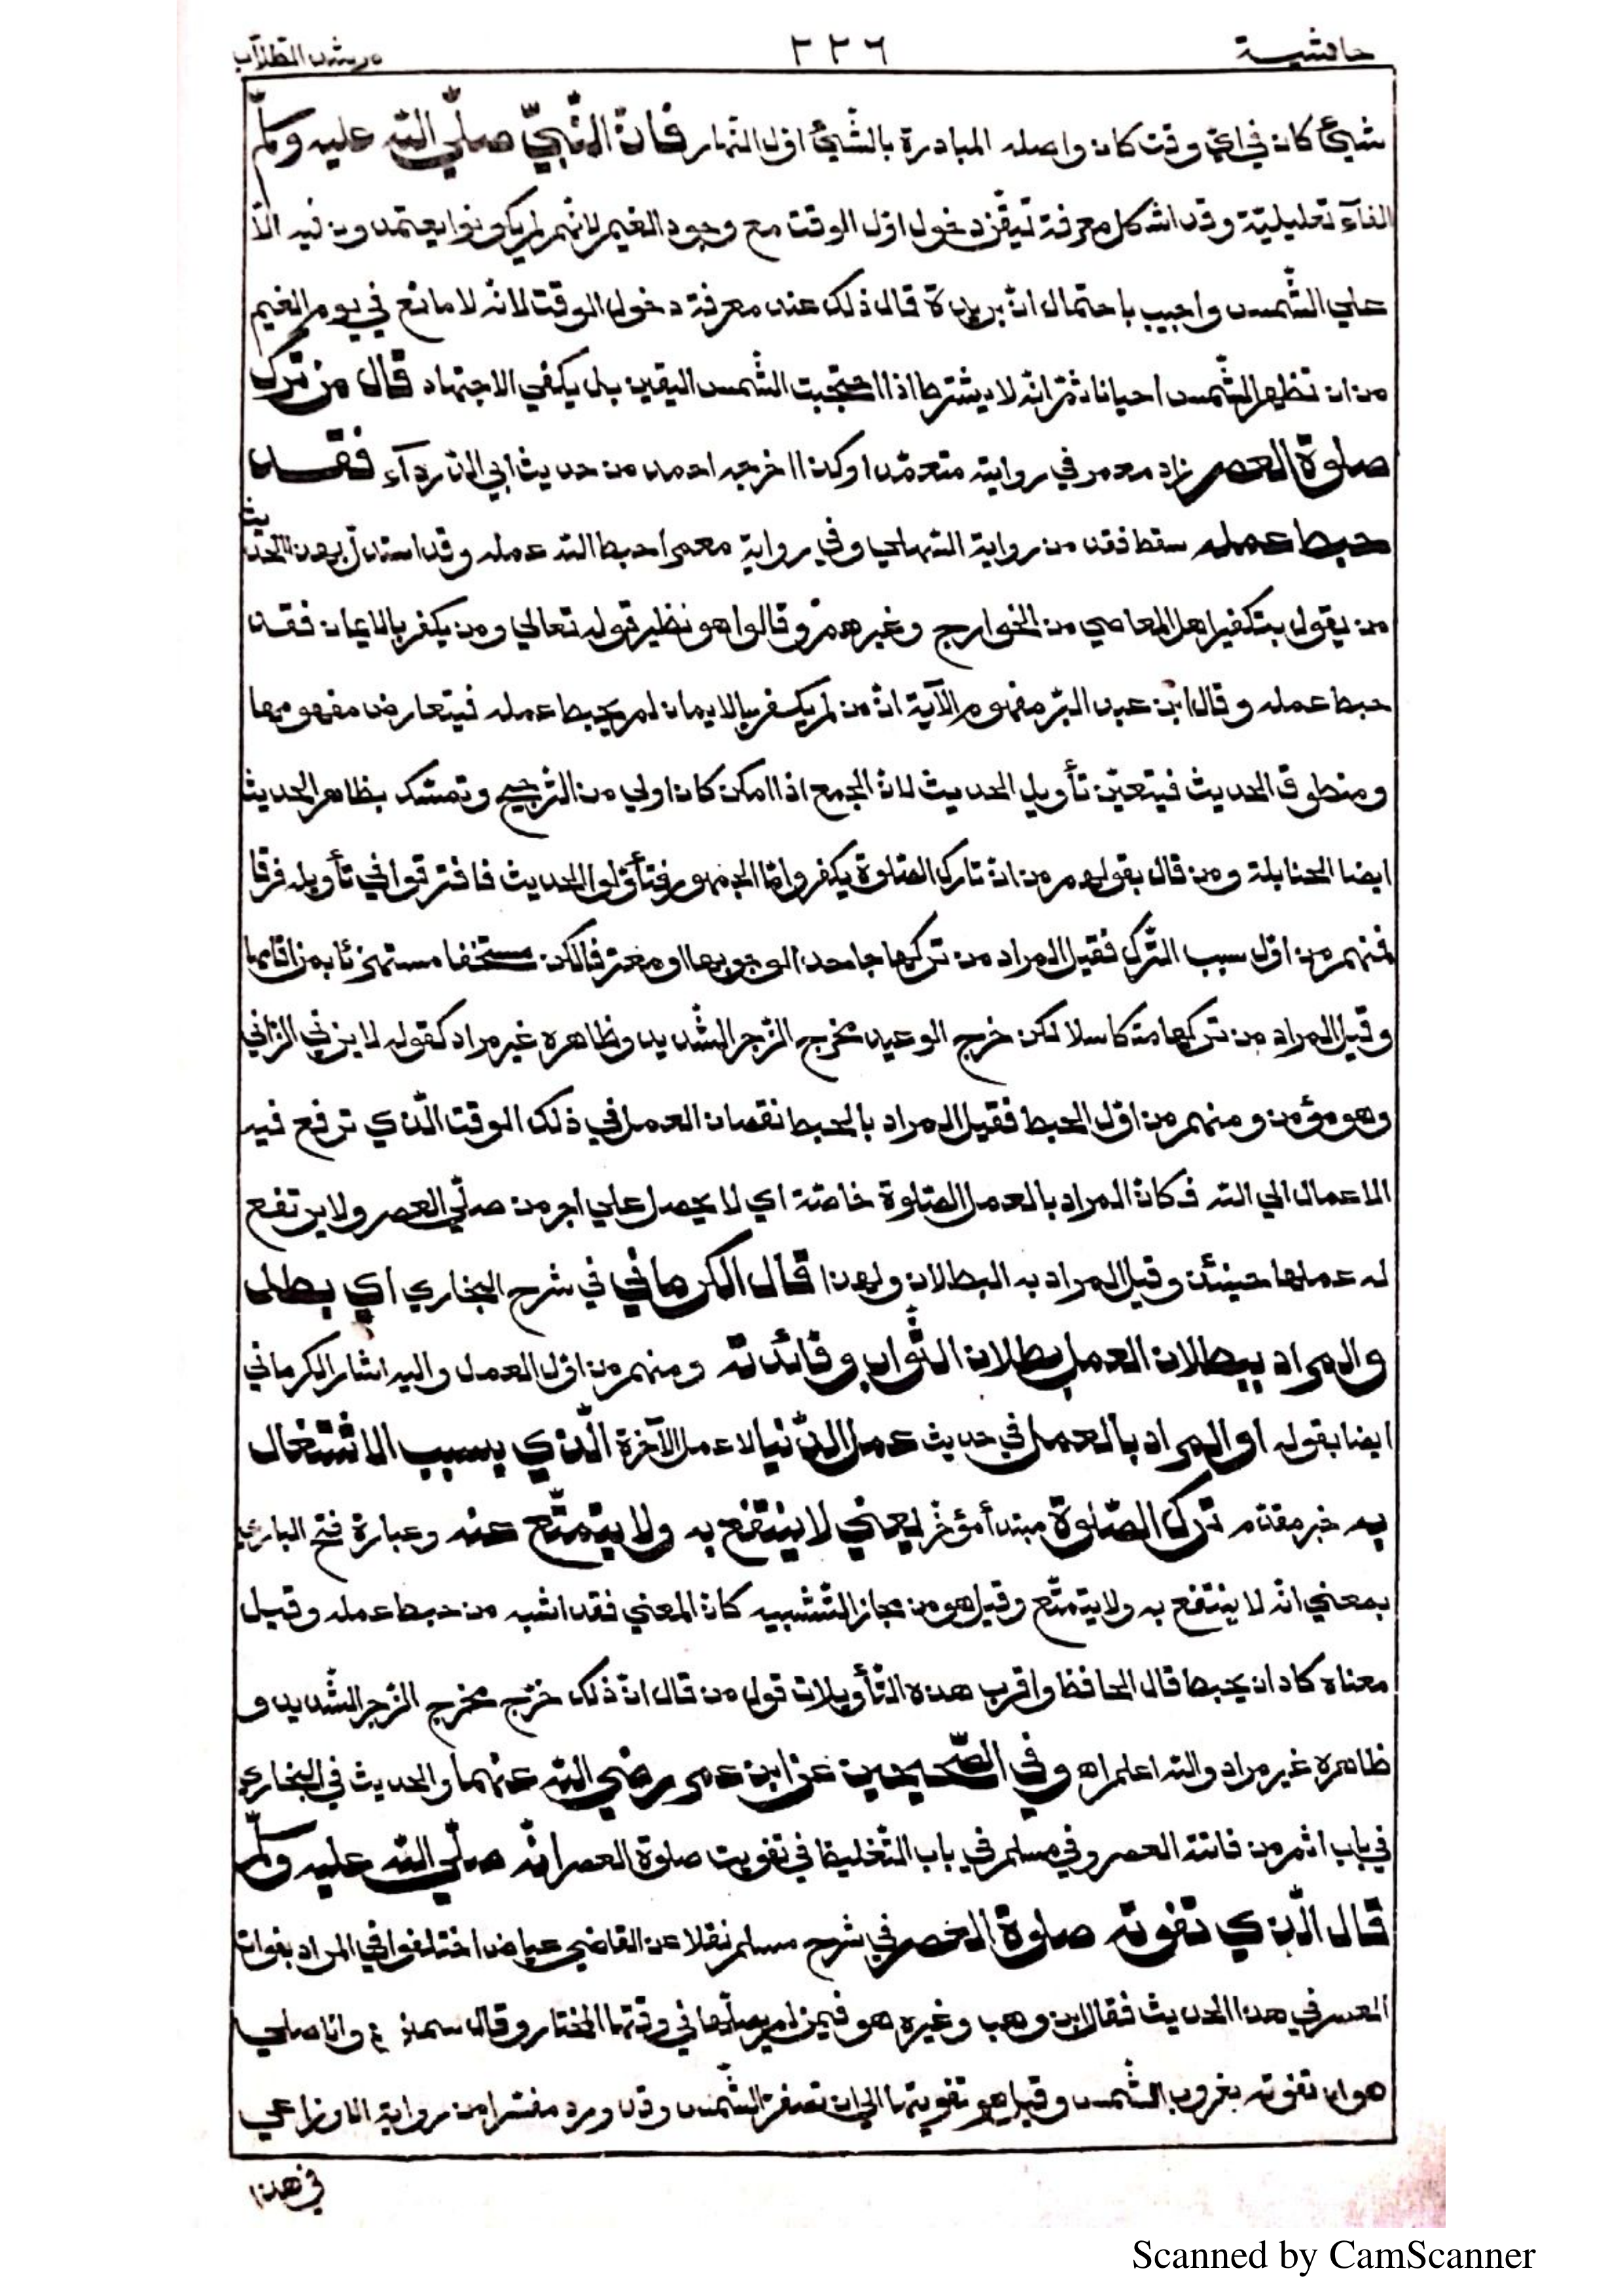 حاشية ٢٢٦ مرشد الطلاب
شيئ كان في اي وقت كان واصله المبادرة بالشيئ اول النهار فان النبي صلي الله عليه وسلم
الفآء تعليلية وقد اشكل معرفة تيقن دخول اول الوقت مع وجود الغيم لانهم لم يكونوا يعتمدون فيه الا
علي الشمس واجيب باحتمال ان بريدة قال ذلك عند معرفة دخول الوقت لانه لا مانع في يوم الغيم
من ان تظهر الشمس احيانا ثم انه لا يشترط اذا احتجبت الشمس اليقين بل يكفي الاجتهاد قال من ترك
صلوة العصر زاد معمر في روايته متعمدا وكذا اخرجه احمد من حديث ابي الدردآء فقد
حبط عمله سقط فقد من رواية المستملي وفي رواية معمر احبط الله عمله وقد استدل بهذا الحديث
من يقول بتكفير اهل المعاصي من الخوارج وغيرهم وقالوا هو نظير قوله تعالي ومن يكفر بالايمان فقد
حبط عمله وقال ابن عبد البر مفهوم الآية ان من لم يكفر بالايمان لم يحبط عمله فيتعارض مفهومها
ومنطوق الحديث فيتعين تأويل الحديث لان الجمع اذا امكن كان اولي من الترجيح وتمسك بظاهر الحديث
ايضا الحنابلة ومن قال بقولهم من ان تارك الصلوة يكفر واما الجمهور فتأولوا الحديث فافترقوا في تأويله فرقا
فمنهم من اول سبب الترك فقيل المراد من تركها جاحدا لوجوبها او معترفا لكن مستخفا مستهزئا بمن اقامها
وقيل المراد من تركها متكاسلا لكن خرج الوعيد مخرج الزجر الشديد وظاهره غير مراد كقوله لا يزني الزاني
وهو مؤمن ومنهم من اول الحبط فقيل المراد بالحبط نقصان العمل في ذلك الوقت الذي ترفع فيه
الاعمال الي الله فكان المراد بالعمل الصلوة خاصة اي لا يحصل علي اجر من صلي العصر ولا يرتفع
له عملها حينئذ وقيل المراد به البطلان ولهذا قال الكرماني في شرح البخاري اي بطل
والمراد ببطلان العمل بطلان الثواب وفائدته ومنهم من اول العمل واليه اشار الكرماني
ايضا بقوله او المراد بالعمل في حديث عمل الدنيا لا عمل الآخرة الذي بسبب الاشتغال
به خبر مقدم ترك الصلوة مبتدأ مؤخر يعني لا ينتفع به ولا يتمتع عنه وعبارة فتح الباري
بمعني انه لا ينتفع به ولا يتمتع وقيل هو من مجاز التشبيه كان المعني فقد اشبه من حبط عمله وقيل
معناه كاد ان يحبط قال الحافظ واقرب هذه التأويلات قول من قال ان ذلك خرج مخرج الزجر الشديد و
ظاهره غير مراد والله اعلم اه وفي الصحيحين عن ابن عمر رضي الله عنهما والحديث في البخاري
في باب اثم من فاتته العصر وفي مسلم في باب التغليظ في تفويت صلوة العصر انه صلي الله عليه وسلم
قال الذي تفوته صلوة العصر في شرح مسلم نقلا عن القاضي عياض اختلفوا في المراد بفوات
العصر في هذا الحديث فقال ابن وهب وغيره هو فيمن لم يصلها في وقتها المختار وقال سحنون والاصيلي
هو ان تفوته بغروب الشمس وقيل هو تفويتها الي ان تصفر الشمس وقد ورد مفسرا من رواية الاوزاعي
في هذا
Scanned by CamScanner